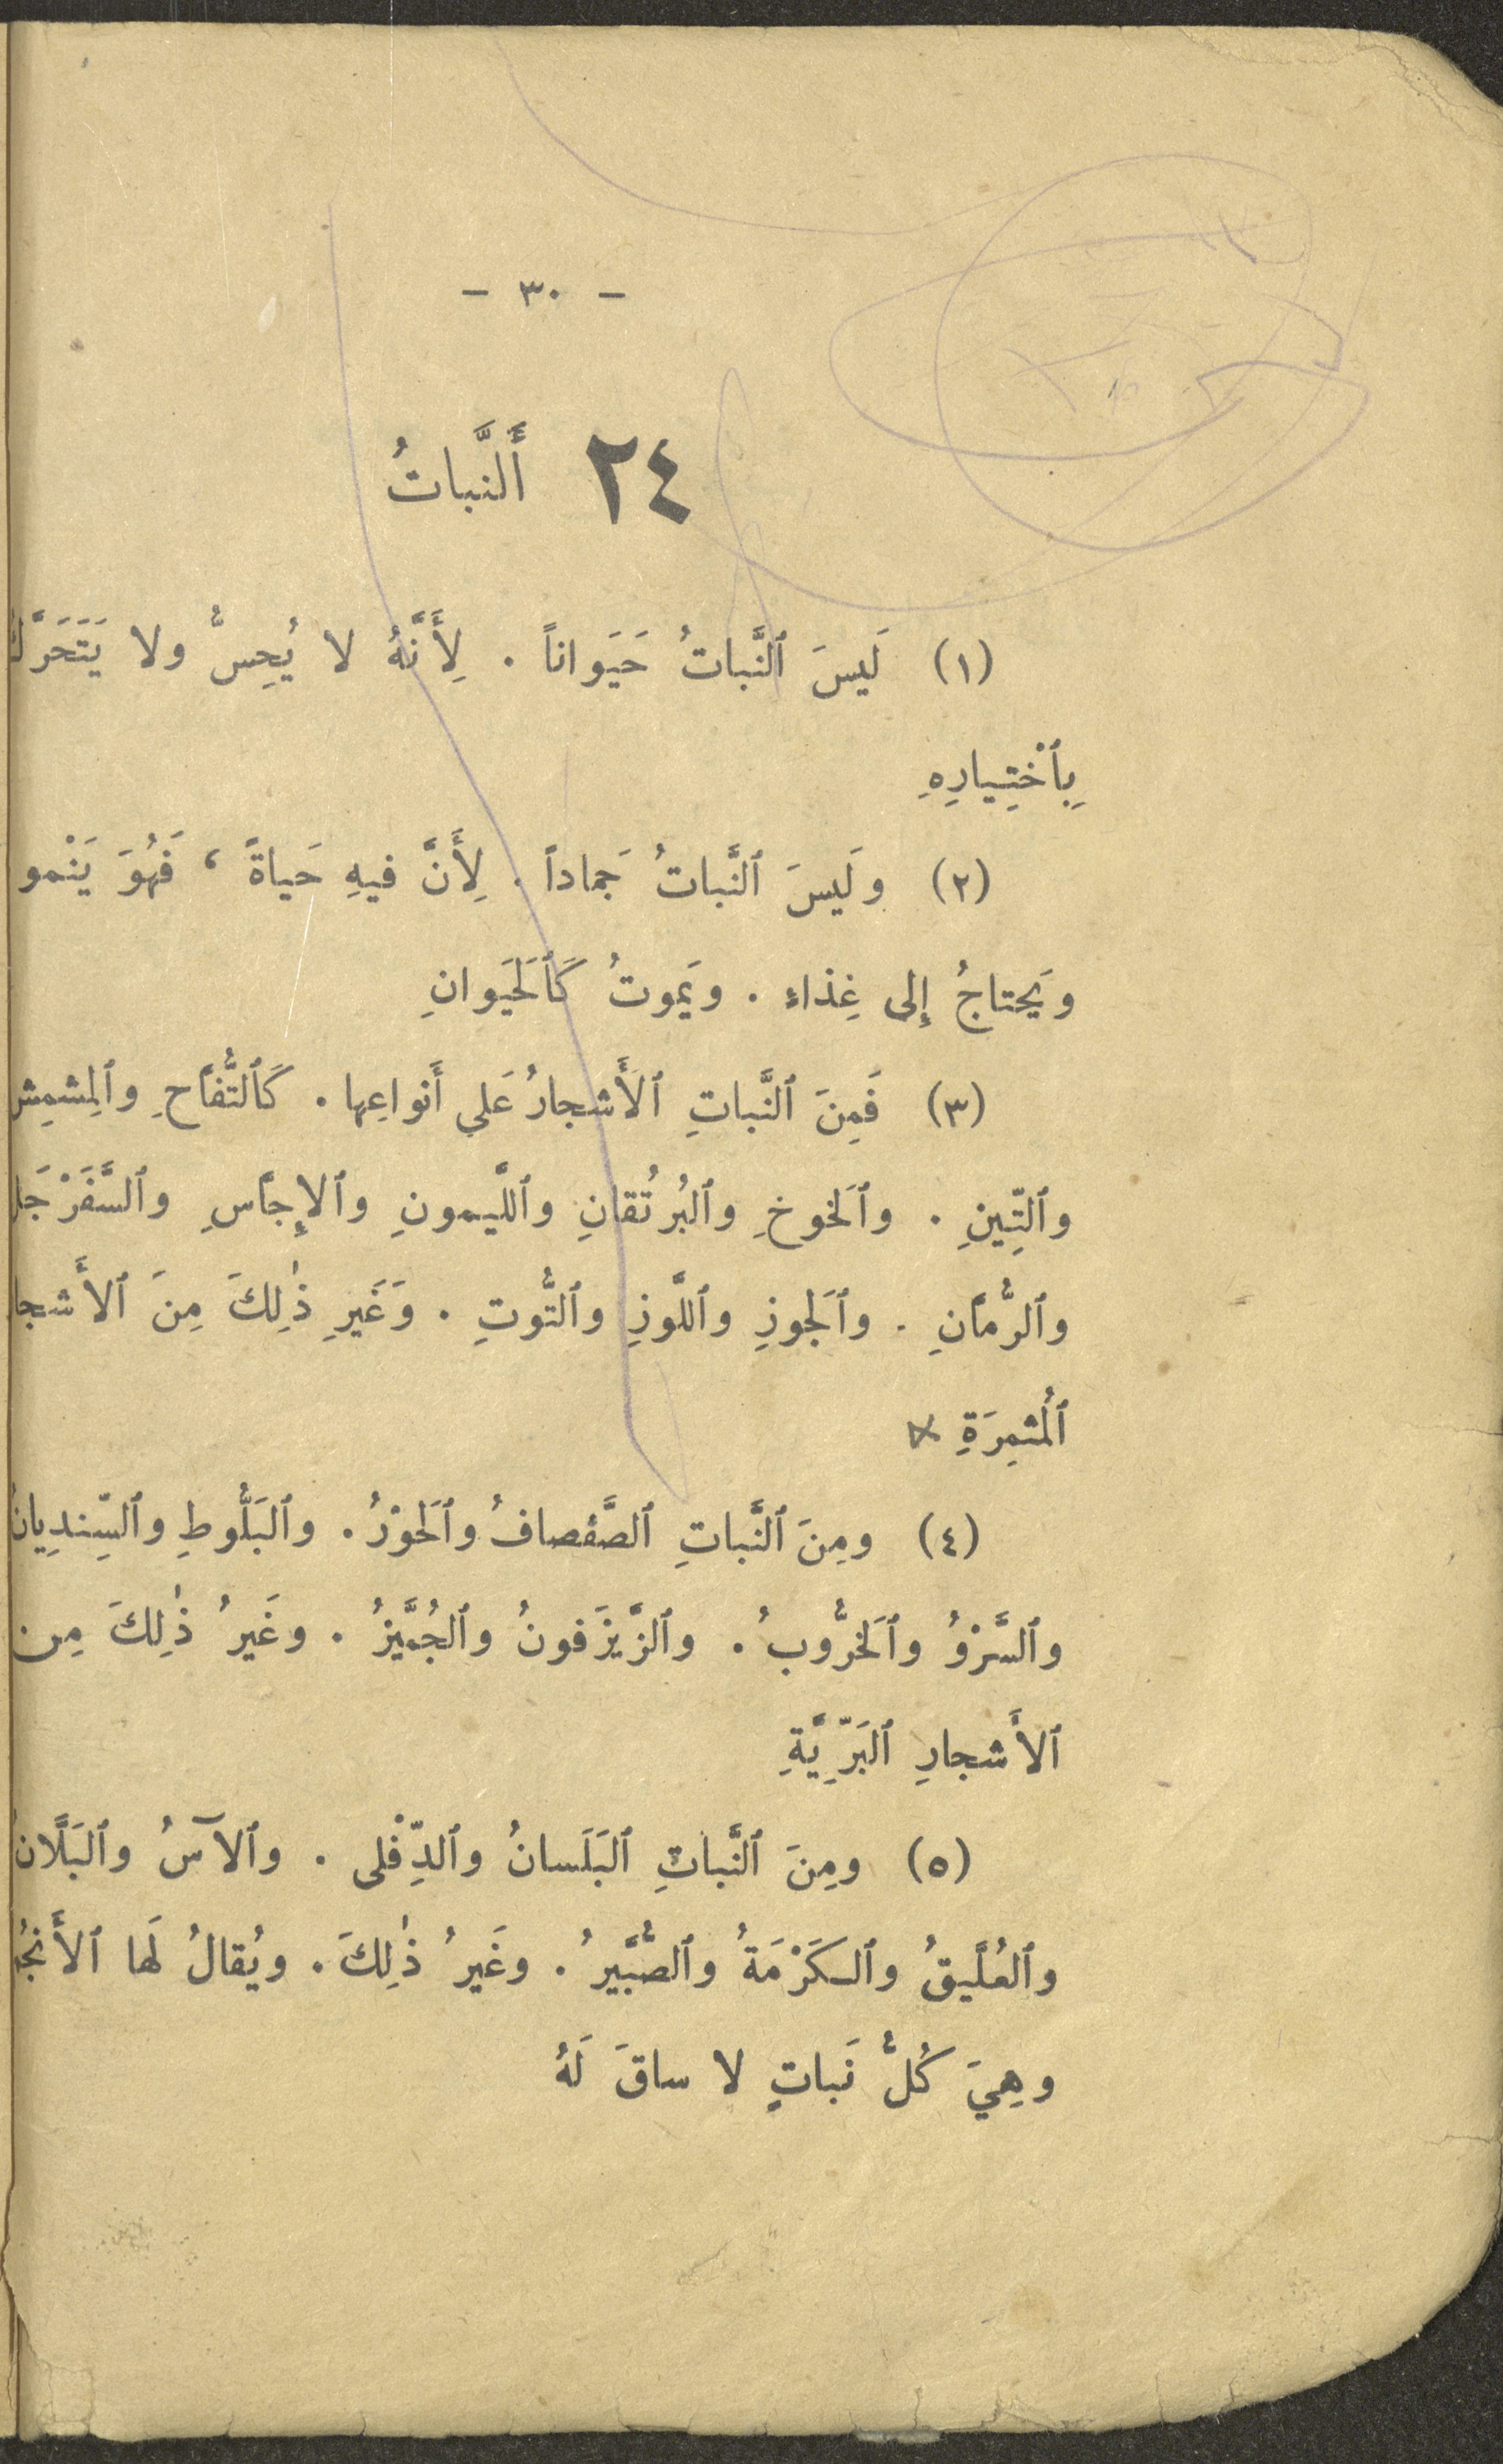 - ٣٠ -
٢٤ أَلنَّباتُ
(١) لَيسَ ٱلنَّباتُ حَيَواناً . لِأَنَّهُ لا يُحِسُّ ولا يَتَحَرَّكُ
بِٱخْتِيارِهِ
(٢) ولَيسَ ٱلنَّباتُ جَماداً . لِأَنَّ فيهِ حَياةً ، فَهُوَ يَنْمو
ويَحتاجُ إِلى غِذاء . ويَموتُ كَٱلحَيَوانِ
(٣) فَمِنَ ٱلنَّباتِ ٱلأَشجارُ عَلى أَنواعِها . كَٱلتُّفّاحِ وٱلمِشمِش
وٱلتِّينِ . وٱلخَوخِ وٱلبُرتُقانِ وٱللَّيمونِ وٱلإِجّاسِ وٱلسَّفَرْجَل
وٱلرُّمّانِ . وٱلجَوزِ وٱللَّوزِ وٱلتُّوتِ . وَغَيرِ ذٰلِكَ مِنَ ٱلأَشجا
ٱلمُثمِرَةِ ×
(٤) ومِنَ ٱلنَّباتِ ٱلصَّفصافُ وٱلحَوْرُ . وٱلبَلُّوطِ وٱلسِّندِيان
وٱلسَّرْوُ وٱلخَرُّوبُ . وٱلزَّيزَفونُ وٱلجُمَّيزُ . وغَيرُ ذٰلِكَ مِن
ٱلأَشجارِ ٱلبَرِّيَّةِ
(٥) ومِنَ ٱلنَّباتِ ٱلبَلَسانُ وٱلدِّفْلى . وٱلآسُ وٱلبَلَّانُ
وٱلعُلَّيقُ وٱلكَرْمَةُ وٱلصُّبَّيرُ . وغَيرُ ذٰلِكَ . ويُقالُ لَها ٱلأَنجُ
وهِيَ كُلُّ نَباتٍ لا ساقَ لَهُ